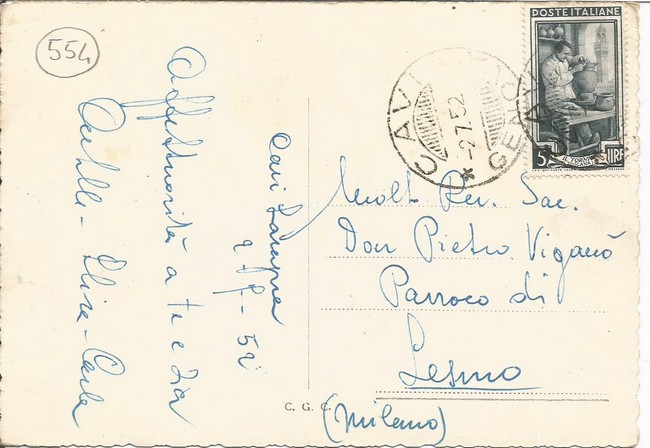 554
Cavi Lavagna
2-7-52
Affettuosità a te e zia
Elisa - Carla
POSTE ITALIANE
5 LIRE
CAVI
-2.7.52
GENOVA
*
Molt Rev. Sac.
Don Pietro Viganò
Parroco di
Lesmo
(Milano)
C. G. C.